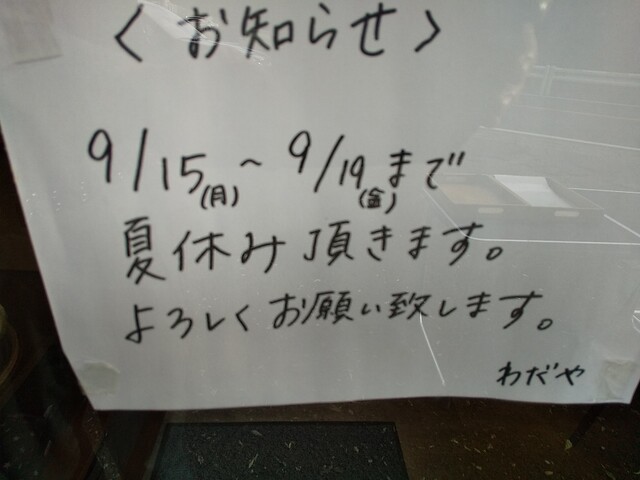 〈お知らせ〉
9/15(月)~9/19(金)まで
夏休み頂きます。
よろしくお願い致します。
わだや